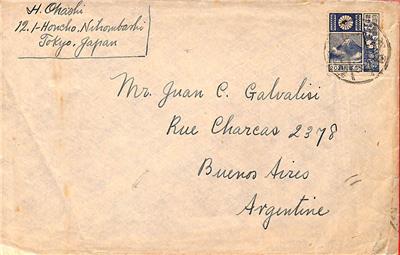 H. Ohashi
12.1-Honcho, Nihombashi
Tokyo, Japan
Mr. Juan C. Galvalisi
Rue Charcas 2378
Buenos Aires
Argentine